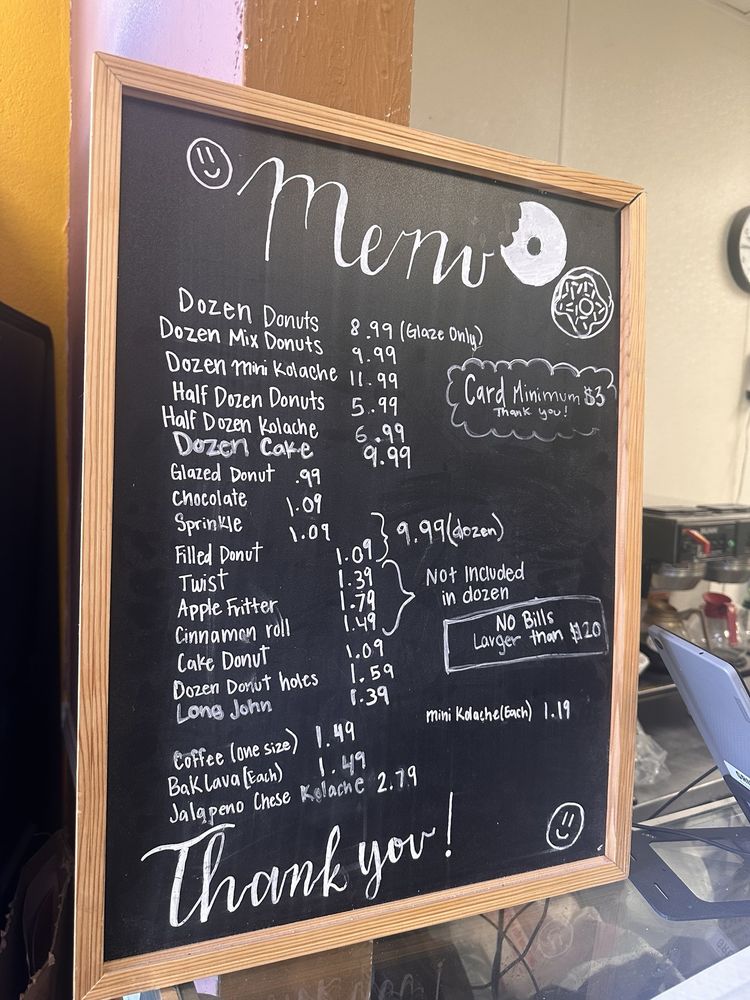 Menu
Dozen Donuts 8.99 (Glaze Only)
Dozen Mix Donuts 9.99
Dozen mini Kolache 11.99
Half Dozen Donuts 5.99
Half Dozen Kolache 6.99
Dozen Cake 9.99
Card Minimum $3
Thank you!
Glazed Donut .99
Chocolate 1.09
Sprinkle 1.09
Filled Donut 1.09
9.99(dozen)
Twist 1.39
Apple Fritter 1.79
Cinnamon roll 1.49
Not Included
in dozen
Cake Donut 1.09
Dozen Donut holes 1.59
Long John 1.39
NO Bills
Larger than $20
mini Kolache(Each) 1.19
Coffee (one size) 1.49
Baklava(Each) 1.49
Jalapeno Chese Kolache 2.79
Thank you!